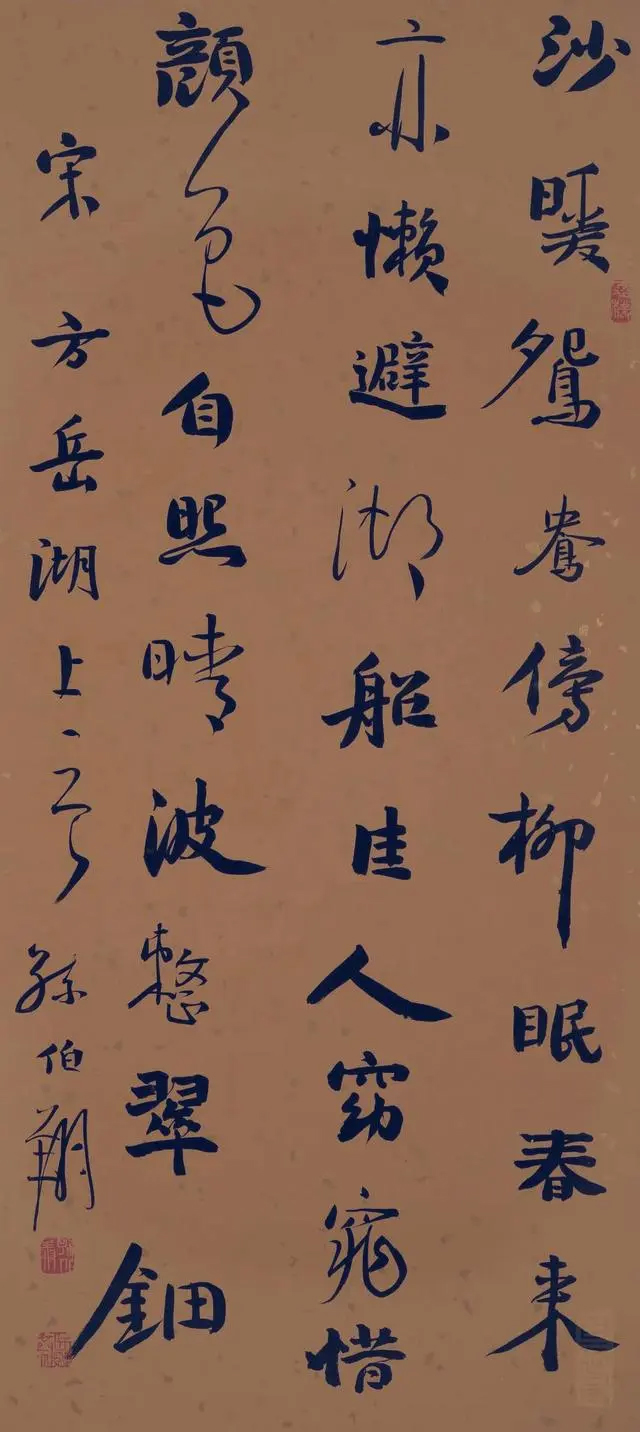 沙暖鴛鴦傍柳眠春來
亦懶避湖船佳人窈窕惜
顏色自照晴波整翠鈿
宋方岳湖上一首
孫伯翔